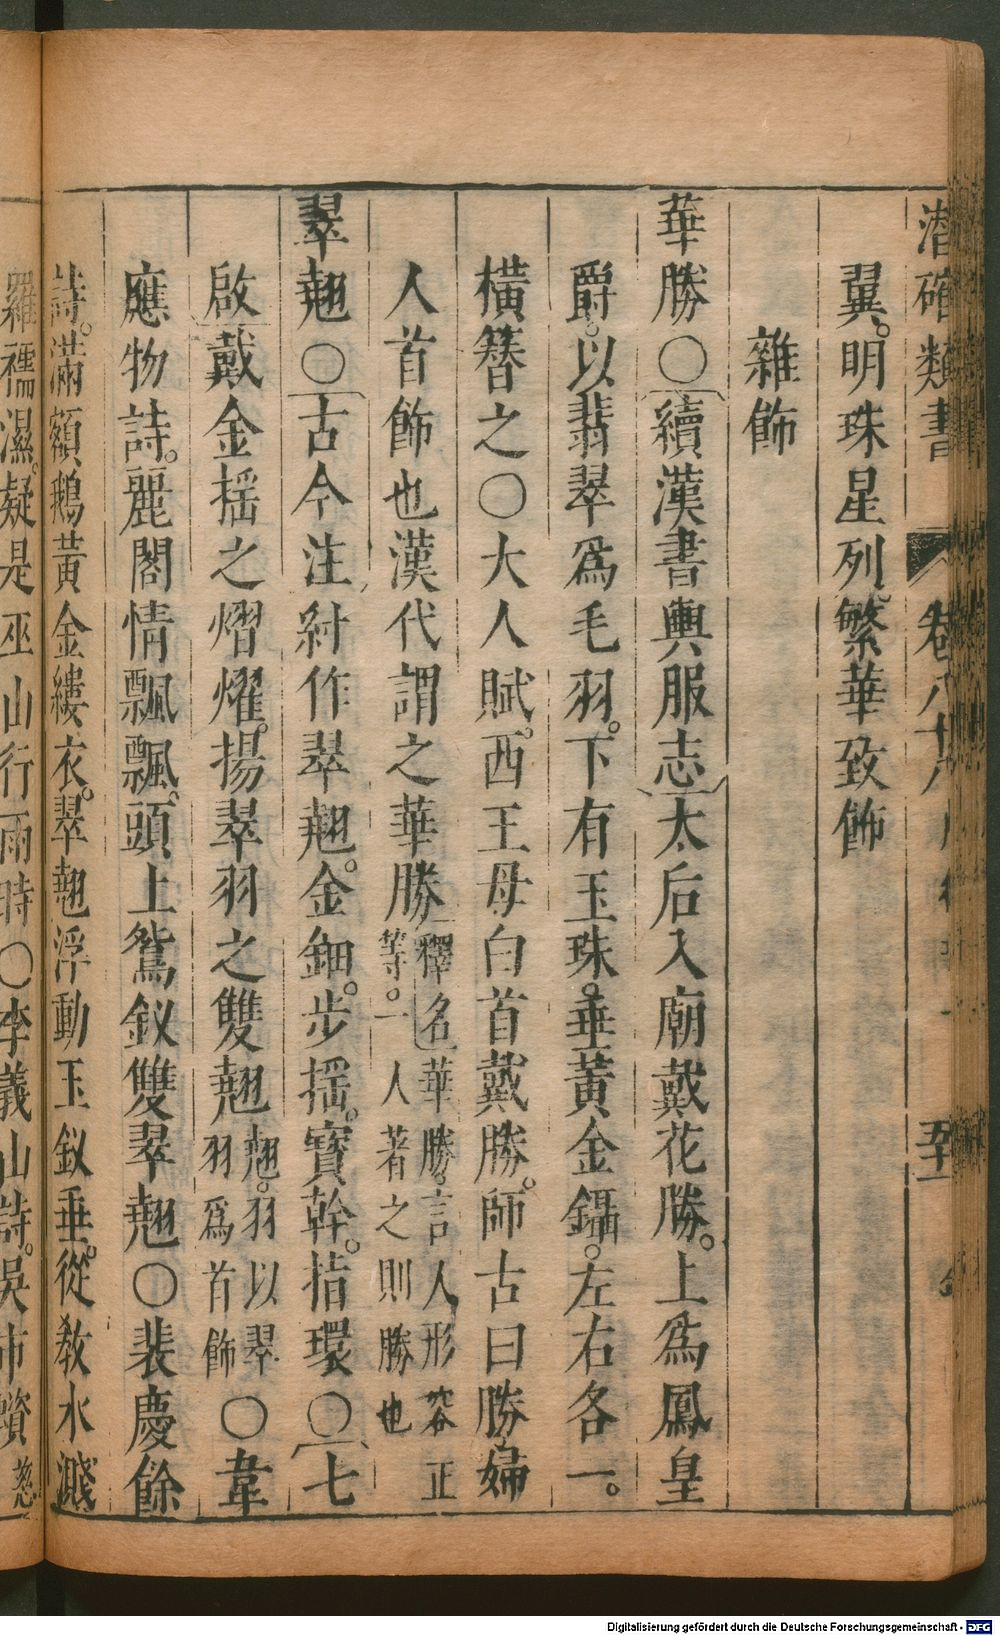 潛確類書 卷八十八
翼。明珠星列。繁華致飾
雜飾
華勝○續漢書輿服志太后入廟戴花勝。上爲鳳皇
爵。以翡翠爲毛羽。下有玉珠。垂黃金鑷。左右各一。
橫簪之○大人賦。西王母白首戴勝。師古曰勝婦
人首飾也漢代謂之華勝釋名華勝。言人形容正
等。一人著之則勝也
翠翹○古今注紂作翠翹。金鈿。步搖。寶幹。指環○七
啟戴金搖之熠燿。揚翠羽之雙翹翹。羽以翠
羽爲首飾○韋
應物詩。麗閣情飄飄。頭上鴛釵雙翠翹○裴慶餘
詩。滿額鵝黃金縷衣。翠翹浮動玉釵垂。從教水濺
羅襦濕。疑是巫山行雨時○李義山詩。吳市
Digitalisierung gefördert durch die Deutsche Forschungsgemeinschaft - DFG